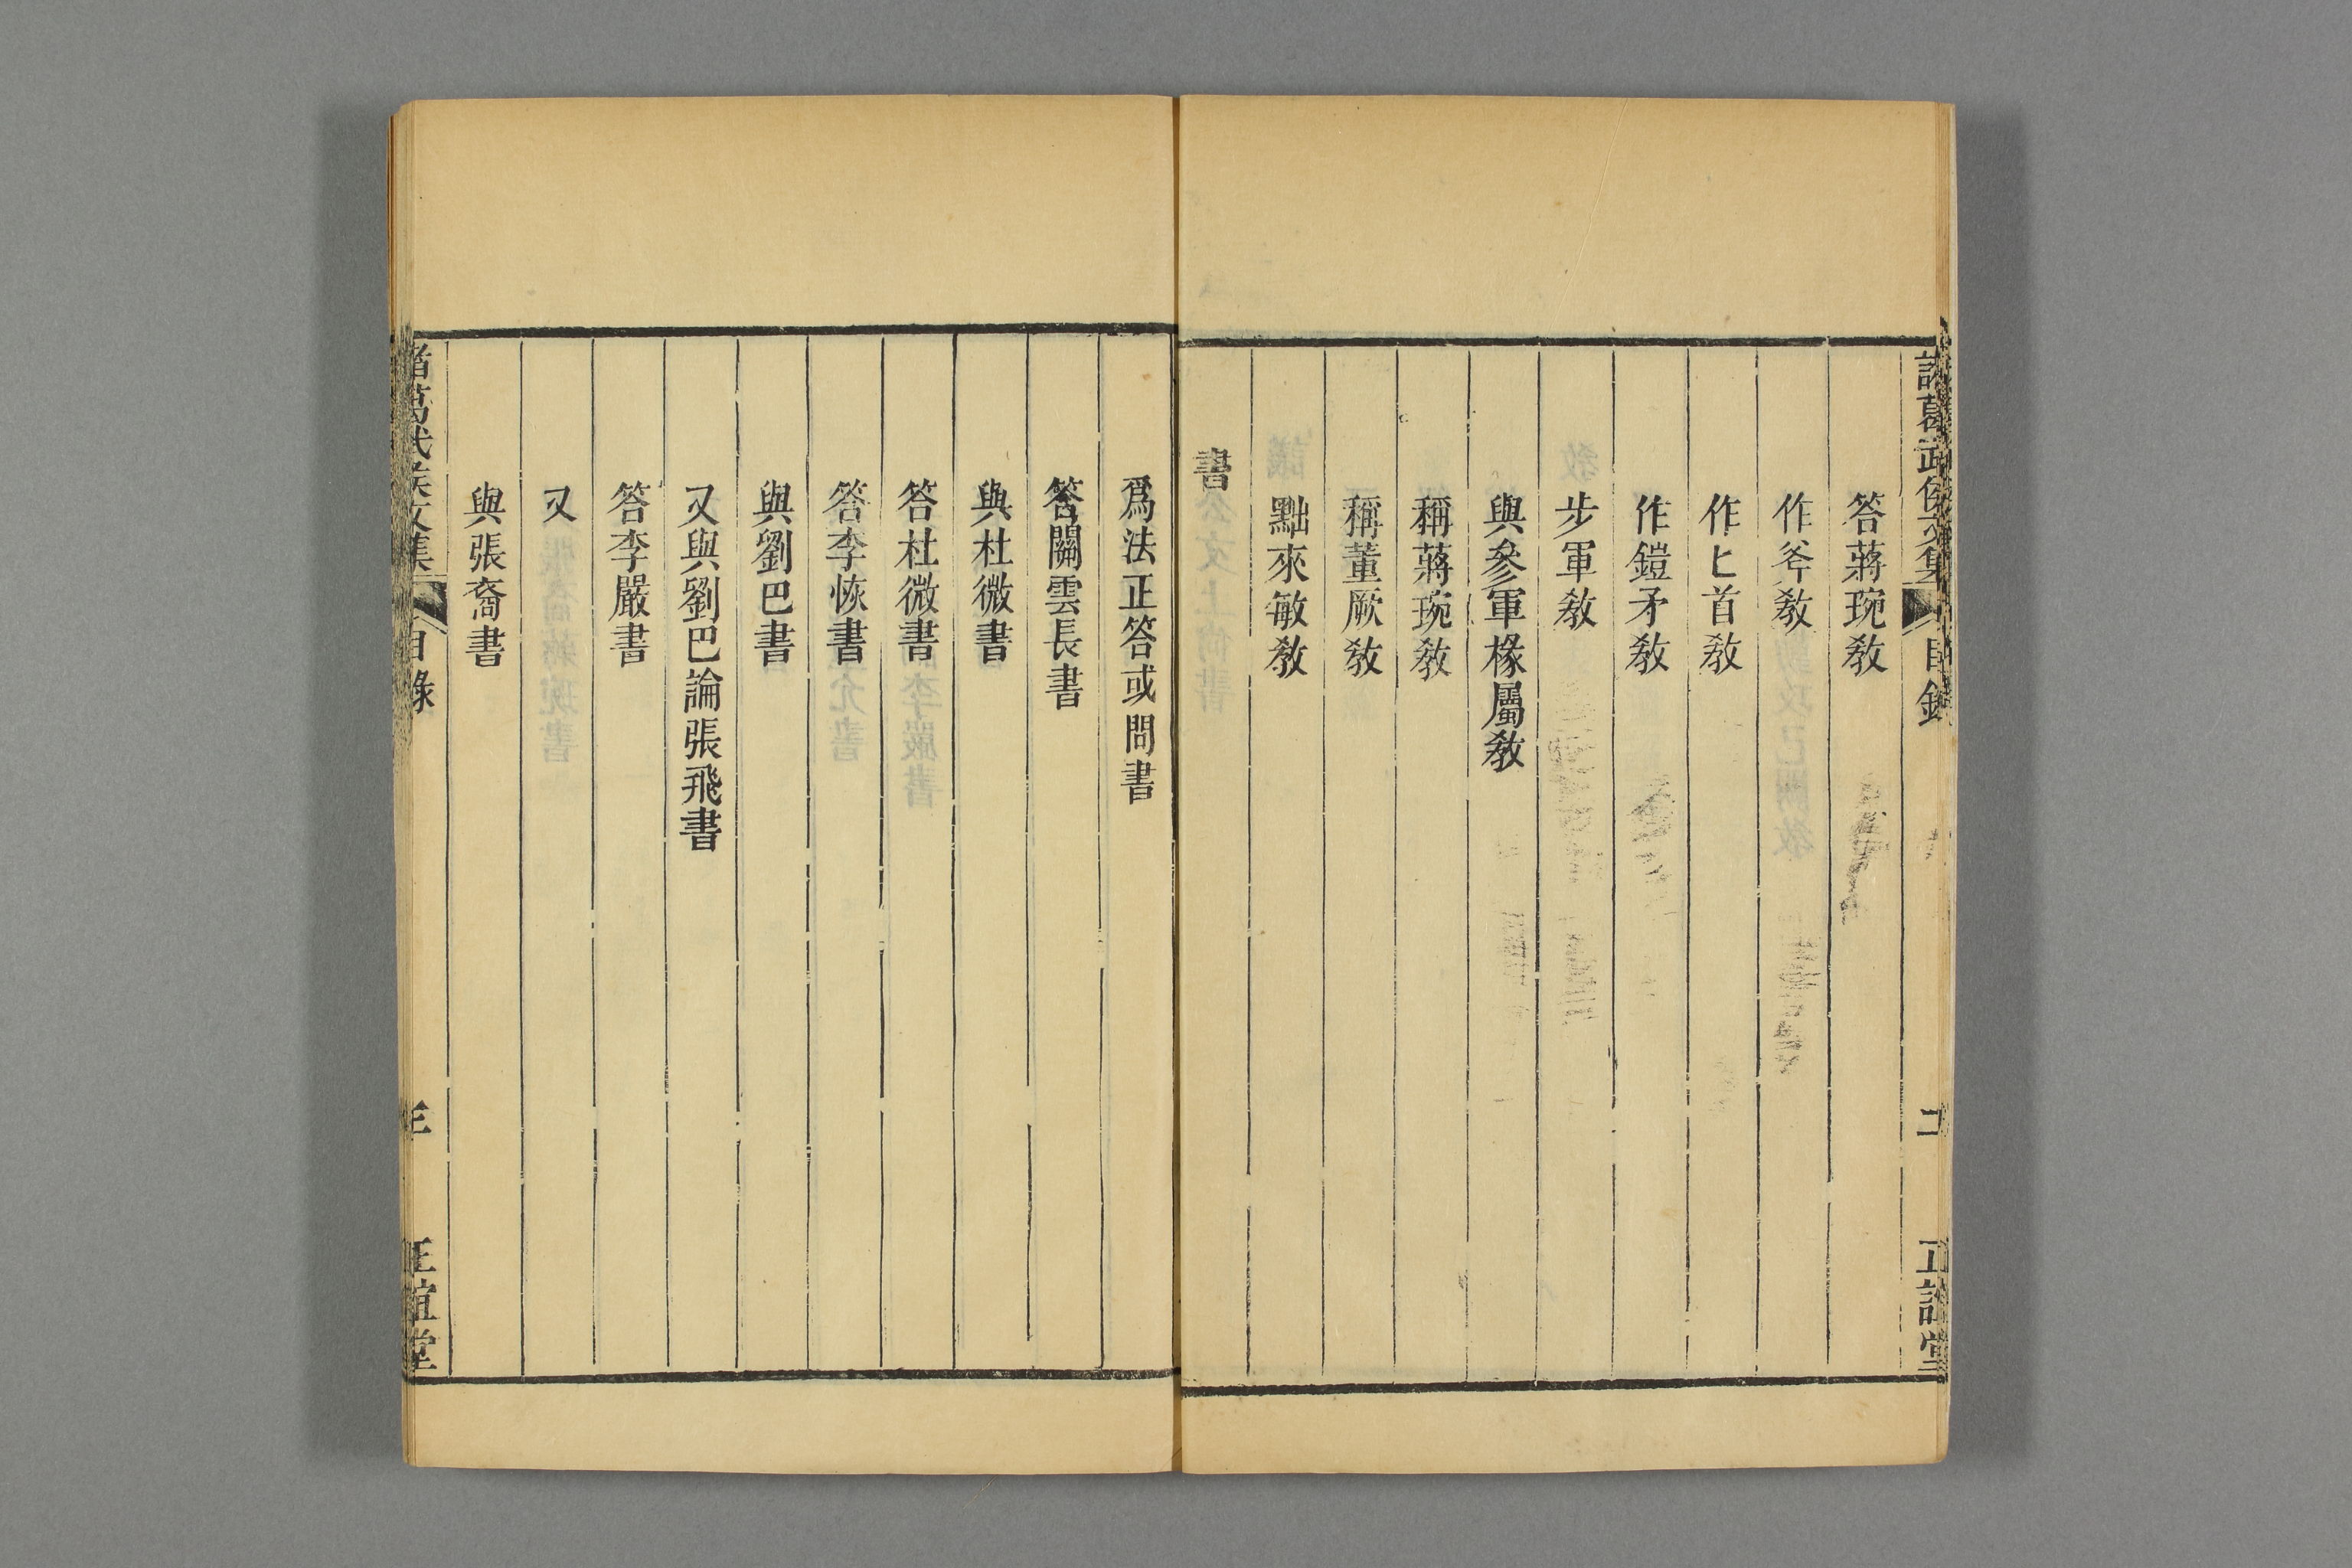 諸葛武侯文集
目錄
二
正誼堂
答蔣琬敎
作斧敎
作匕首敎
作鎧矛敎
步軍敎
與參軍椽屬敎
稱蔣琬敎
稱董厥敎
黜來敏敎
書
爲法正答或問書
答關雲長書
與杜微書
答杜微書
答李恢書
與劉巴書
又與劉巴論張飛書
答李嚴書
又
與張裔書
諸葛武侯文集
目錄
三
正誼堂